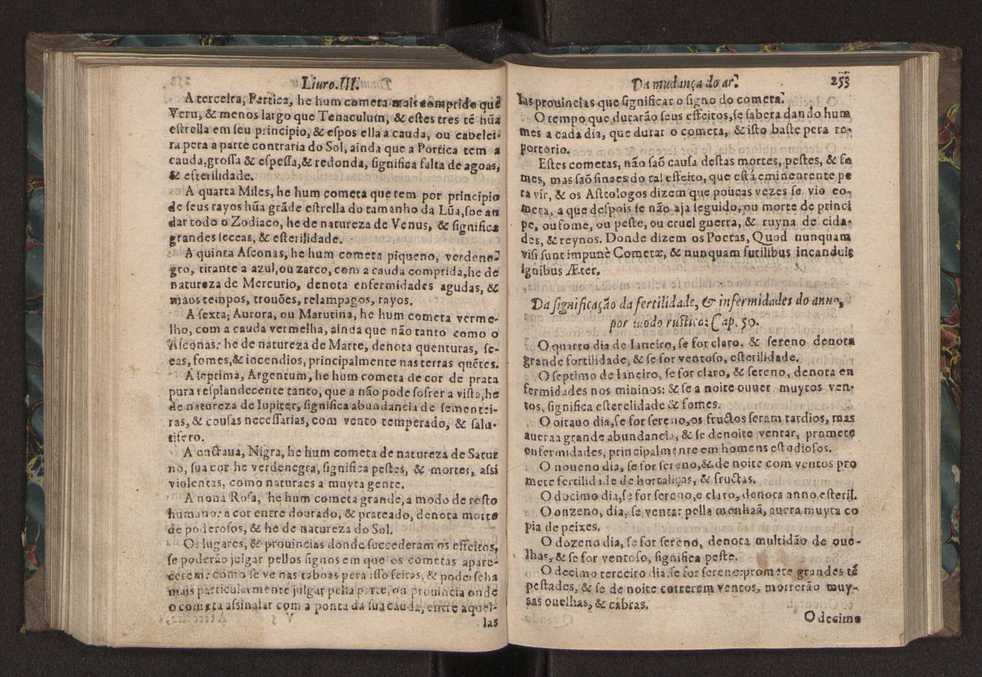 Liuro.III.
A terceira, Pertica, he hum cometa mais comprido que
Veru, & menos largo que Tenaculum, & estes tres tẽ hũa
estrella em seu principio, & espos ella a cauda, ou cabelei-
ra pera a parte contraria do Sol, ainda que a Portica tem a
cauda, grossa & espessa, & redonda, significa falta de agoas,
& esterilidade.
A quarta Miles, he hum cometa que tem por principio
de seus rayos hũa grãde estrella do tamanho da Lũa, soe an
dar todo o Zodiaco, he de natureza de Venus, & significa
grandes seccas, & esterilidade.
A quinta Asconas, he hum cometa piqueno, verdene-
gro, tirante a azul, ou zarco, com a cauda comprida, he de
natureza de Mercurio, denota enfermidades agudas, &
maos tempos, trouões, relampagos, rayos.
A sexta; Aurora, ou Matutina, he hum cometa verme-
lho, com a cauda vermelha, ainda que não tanto como o
Asconas: he de natureza de Marte, denota quenturas, se-
cas, fomes, & incendios, principalmente nas terras quẽtes.
A septima, Argentum, he hum cometa de cor de prata
pura resplandecente tanto, que a não pode sofrer a vista, he
de natureza de Iupiter, significa abundancia de sementei-
ras, & cousas necessarias, com vento temperado, & salu-
tifero.
A octaua, Nigra, he hum cometa de natureza de Satur
no, sua cor he verdenegra, significa pestes, & mortes, assi
violentas, como naturaes a muyta gente.
A nona Rosa, he hum cometa grande, a modo de rosto
humano: a cor entre dourado, & prateado, denota morte
de poderosos, & he de natureza do Sol.
Os lugares, & prouincias donde succederam os effeitos,
se poderão julgar pellos signos em que os cometas apare-
cerem: como se ve nas taboas pera isso feitas, & podeseha
mais particularmente julgar pella parte, ou prouincia onde
o cometa assinalar com a ponta da sua cauda, entre aquel-
las
Da mudança do ar.
253
las prouincias que significar o signo do cometa.
O tempo que durarão seus effeitos, se sabera dando hum
mes a cada dia, que durar o cometa, & isto baste pera re-
portorio.
Estes cometas, não saõ causa destas mortes, pestes, & fo
mes, mas saõ sinaes do tal effeito, que està eminente pe
ra vir, & os Astologos dizem que poucas vezes se vio co-
meta, a que despois se não aja seguido, ou morte de princi
pe, ou fome, ou peste, ou cruel guerra, & ruyna de cida-
des, & reynos. Donde dizem os Poetas, Quod nunquam
visi sunt impunè Cometæ, & nunquam futilibus incanduit
ignibus Æter.
Da significação da fertilidade, & infermidades do anno,
por modo rustico: Cap. 50.
O quarto dia de Ianeiro, se for claro, & sereno denota
grande fortilidade, & se for ventoso, esterilidade.
O septimo de Ianeiro, se for claro, & sereno, denota en
fermidades nos mininos: & se a noite ouuer muytos ven-
tos, significa esterelidade & fomes.
O oitauo dia, se for sereno, os fructos seram tardios, mas
auera a grande abundancia, & se denoite ventar, promete
enfermidades, principalmente em homens estudiosos.
O noueno dia, se for sereno, & de noite com ventos pro
mete fertilidade de hortaliças, & fructas.
O decimo dia, se for sereno, e claro, denota anno esteril.
O onzeno, dia, se ventar pella menhaã, auera muyta co
pia de peixes.
O dozeno dia, se for sereno, denota multidão de oue-
lhas, & se for ventoso, significa peste.
O decimo terceiro dia, se for sereno: promete grandes tẽ
pestades, & se de noite correrem ventos, morrerão muy-
tas ouelhas, & cabras.
O decimo